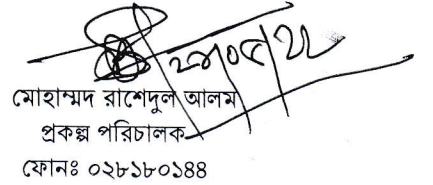 মোহাম্মদ রাশেদুল আলম
প্রকল্প পরিচালক
ফোনঃ ০২৮১৮০১৪৪